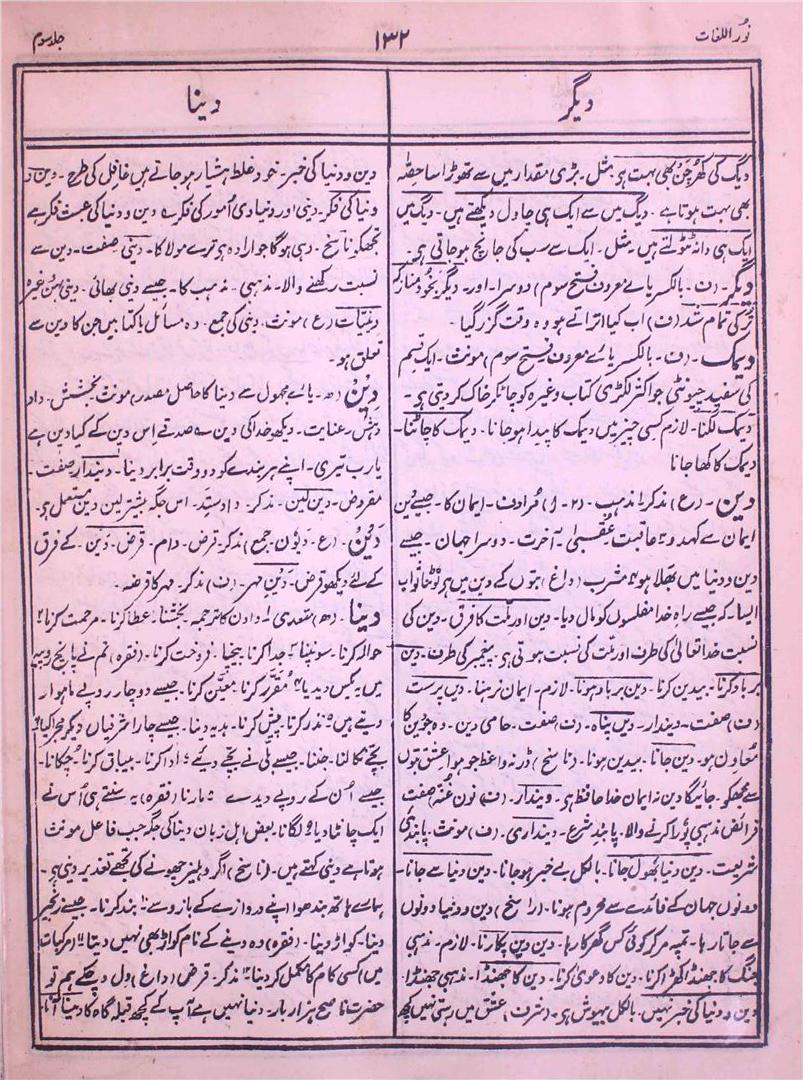 نُور اللغات
۱۳۲
جلد سوم
دیگر
دینا
دیگ کی کھُرچَن بھی بہت ہی مثل۔ بڑی مقدار میں سے تھوڑا سا حِصّہ
بھی بہت ہوتا ہے۔ دیگ میں سے ایک ہی چاول دیکھتے ہیں۔ دیگ میں
ایک ہی دانہ ٹٹولتے ہیں۔ مثل۔ ایک سے سب کی جانچ ہو جاتی ہی۔
دیگر۔ (ف۔ بالکسر یائے معروف و فتح سوم) دوسرا۔ اور۔ دیگر بخود مناز کہ
تُرکی تمام شد (ف) اب کیا اتراتے ہو وہ وقت گزر گیا۔
دیمک۔ (ف۔ بالکسر یائے معروف و فتح سوم) مونث۔ ایک قسم
کی سفید چیونٹی جو اکثر لکڑی کتاب وغیرہ کو چاٹ کر خاک کر دیتی ہی۔
دیمک لگنا۔ لازم کسی چیز میں دیمک کا پیدا ہو جانا۔ دیمک کا چاٹنا۔
دیمک کا کھا جانا
دین۔ (ع) مذکر ۱ مذہب۔ (۱-۲) مُرادف۔ ایمان کا۔ جیسے دین
ایمان سے کہدو ۲ عاقبت عقبیٰ ۳ آخرت۔ دوسرا جہان۔ جیسے
دین و دنیا میں بھلا ہو ۴ مشرب (داغ) بتوں کے دین میں ہی لوٹا ثواب
ایسا۔ کہ جیسے راہ خدا مفلسوں کو مال دیا۔ دین اور ملّت کا فرق۔ دین کی
نسبت خدا تعالیٰ کی طرف اور ملت کی نسبت ہوتی ہی پیغمبر کی طرف۔ دین
برباد کرنا۔ بیدین کرنا۔ دین برباد ہونا۔ لازم۔ ایمان نہ رہنا۔ دیں پرست
(ف) صفت۔ دیندار۔ دیں پناہ۔ (ف) صفت۔ حامی دین۔ وہ جو دین کا
معاون ہو۔ دین جانا۔ بیدین ہونا۔ (ناسخ) ڈر نہ واعظ جو موا عشق بتوں
سے مجھکو۔ جائیگا دین نہ ایمان خدا حافظ ہی۔ دیندار۔ (ف) نون غنّہ) صفت
فرائض مذہبی پُورا کرنے والا۔ پابند شرع۔ دینداری۔ (ف) مونث۔ پابندی
شریعت۔ دین دنیا بھُول جانا۔ بالکل بے خبر ہو جانا۔ دین دنیا سے جانا۔
دونوں جہان کے فائدے سے محروم ہونا۔ (راسخ) دین و دنیا دونوں
سے جاتا رہا۔ تمپہ مر کر کوئی کس گھر کا رہا۔ دین دین پکارنا۔ لازم۔ مذہبی
جنگ کا جھنڈا کھڑا کرنا۔ دین کا دعویٰ کرنا۔ دین کا جھنڈا۔ مذہبی جھنڈا۔
دین و دنیا کی خبر نہیں۔ بالکل بیہوش ہی۔ (شرف) عشق میں رہتی نہیں کچھ
دین و دنیا کی خبر۔ خود غلط ہشیار ہو جاتے ہیں غافل کی طرح۔ دین و
دنیا کی فکر۔ دینی اور دنیاوی اُمور کی فکر ہے دین و دنیا کی عبث فکر ہے
تجھکو ناسخ۔ وہی ہوگا جو ارادہ ہی ترے مولا کا۔ دینی۔ صفت۔ دین سے
نسبت رکھنے والا۔ مذہبی۔ مذہب کا۔ جیسے دینی بھائی۔ دینی بہن وغیرہ
دینیات (ع) مونث۔ دینی کی جمع۔ وہ مسائل یا کتابیں جن کا دین سے
تعلق ہو۔
دین (ھ۔ یائے مجہول سے دینا کا حاصل مصدر) مونث۔ بخشش۔ داد
دہش۔ عنایت۔ دیکھو خدا کی دین ؎ صدقے اس دین کے کیا دین ہے
یا رب تیری۔ اپنے ہر بندے کو دو وقت برابر دینا۔ دیندار۔ صفت۔
مقروض۔ دین لین۔ مذکر۔ داد ستد۔ اس جگہ بیشتر لین دین مستعمل ہی۔
دَین۔ (ع۔ دُیُون جمع) مذکر۔ قرض۔ دام۔ قرض۔ دَین۔ کے فرق
کے لئے دیکھو قرض۔ دَینِ مہر۔ (ف) مذکر۔ مہر کا قرضہ۔
دینا۔ (ھ) متعدی ۱۔ دادن کا ترجمہ۔ بخشنا۔ عطا کرنا۔ مرحمت کرنا ۲
حوالہ کرنا۔ سونپنا ۳ جدا کرنا۔ بیچنا۔ فروخت کرنا۔ (فقرہ) تم نے پانچ روپیہ
میں یہ بکس دیدیا ۴ مُقرّر کرنا۔ معیّن کرنا۔ جیسے دو چار روپے ماہوار
دیتے ہیں ۵ نذر کرنا۔ پیش کرنا۔ ہدیہ دینا۔ جیسے چار اشرفیاں دیکر مجرا کیا ۶
بچّے نکالنا۔ جننا۔ جیسے بلی نے بچّے دیئے ۷ ادا کرنا۔ بیباق کرنا۔ چُکانا۔
جیسے اُن کے روپے دیدے ۸ مارنا (فقرہ) یہ سنتے ہی اُس نے
ایک چانٹا دیا ۹ لگانا۔ بعض اہل زبان دینا کی جگہ جب فاعل مونث
ہوتا ہے دینی کہتے ہیں۔ (ناسخ) اگر دہلیز چھونے کی تجھے تعذیر دینی ہی۔
ہمارے ہاتھ بندھوا اپنے دروازے کے بازو سے ۱۰ بند کرنا۔ جیسے زنجیر
دینا۔ کواڑ دینا۔ (فقرہ) وہ دینے کے نام کواڑ بھی نہیں دیتا ۱۱ (مرکبات
میں) کسی کام کا مکمل کر دینا ۱۲ مذکر۔ قرض (داغ) دل دیچکے ہم تو
حضرت ناصح ہزار بار۔ دنیا نہیں ہے آپ کے کچھ قبلہ گاہ کا دینا آنا۔